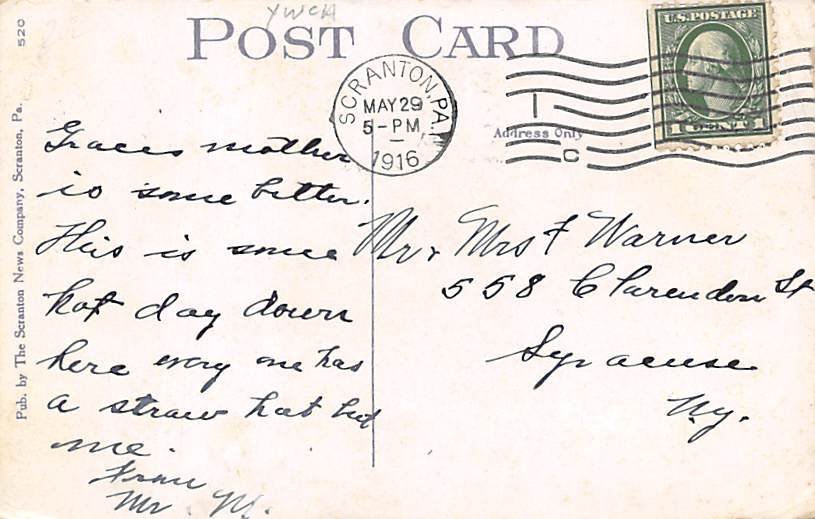 YWCA
POST CARD
520
Pub. by The Scranton News Company, Scranton, Pa.
SCRANTON, PA.
MAY 29
5-PM
1916
1
C
Address Only
U.S. POSTAGE
1 CENT 1
Graces mother
is some better.
This is some
hot day down
here every one has
a straw hat but
me.
From
Mr. M.
Mr & Mrs F Warner
558 Clarendon St
Syracuse
Ny.